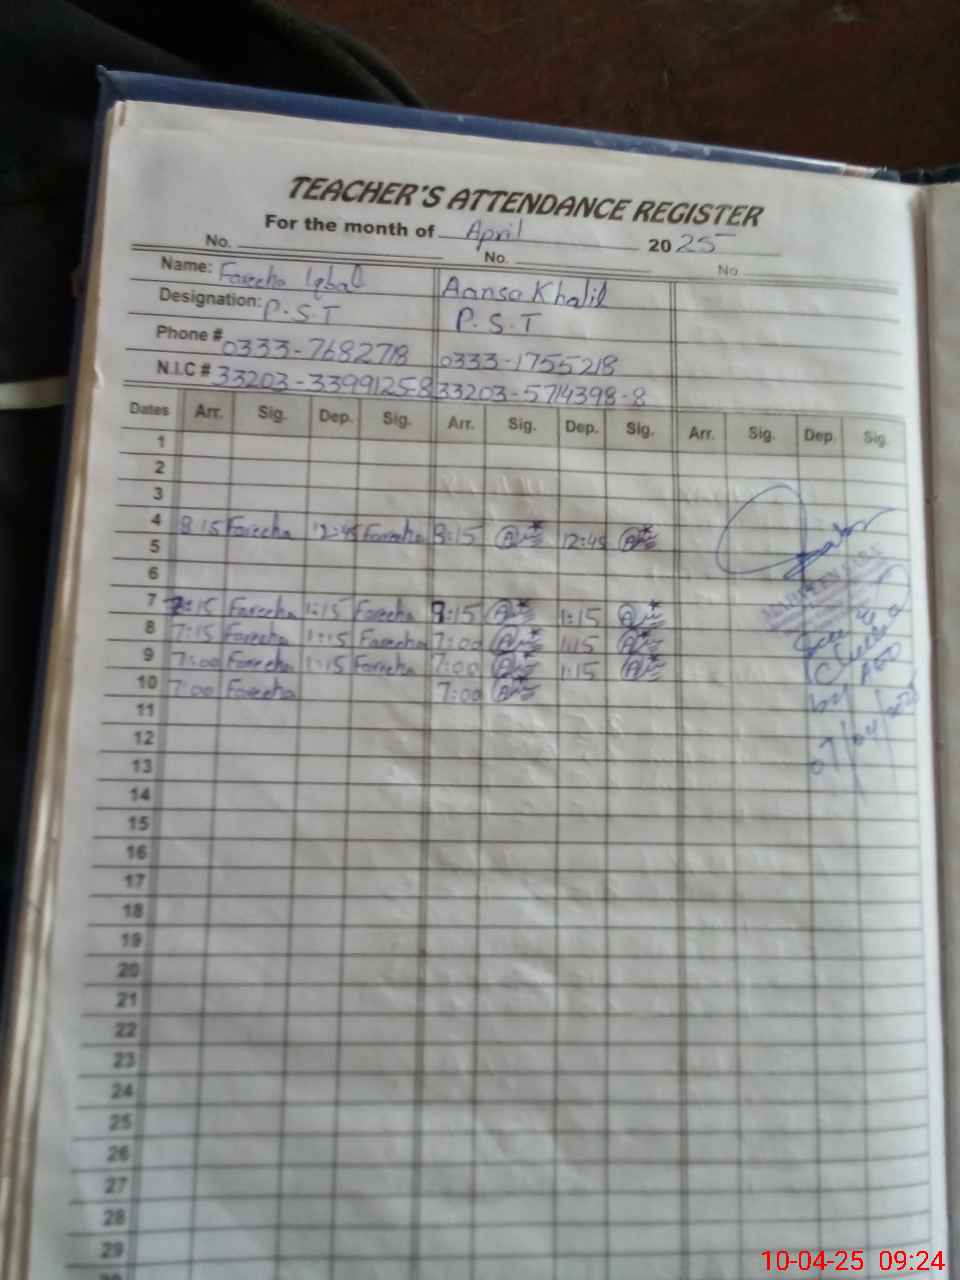 TEACHER'S ATTENDANCE REGISTER
For the month of April 2025
No. No. No.
Name: Fareeha Iqbal Aansa Khalil
Designation: P.S.T P.S.T
Phone # 0333-7682718 0333-1755218
N.I.C # 33203-3399125-8 33203-574398-8
Dates Arr. Sig. Dep. Sig. Arr. Sig. Dep. Sig. Arr. Sig. Dep. Sig.
1
2
3
4 8:15 Fareeha 12:45 Fareeha 8:15 12:45
5
6
7 7:15 Fareeha 1:15 Fareeha 1:15
8 7:15 Fareeha 1:15 Fareeha 7:00 1:15
9 7:00 Fareeha 1:15 Fareeha 7:00 1:15
10 7:00 Fareeha 7:00
11
12
13
14
15
16
17
18
19
20
21
22
23
24
25
26
27
28
29
by
07/04/
10-04-25 09:24